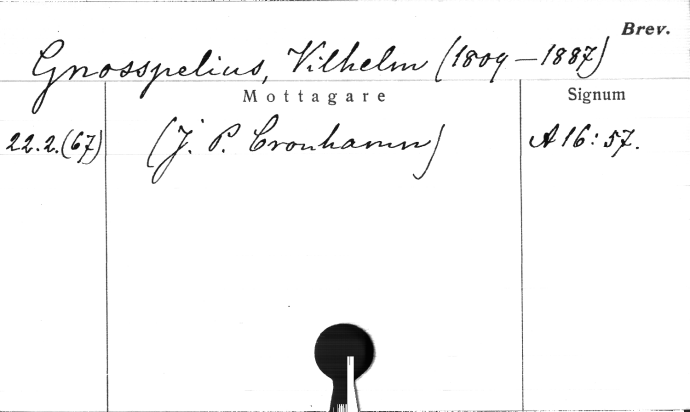 Brev.
Gnosspelius, Vilhelm (1809-1887)
Mottagare Signum
22.2.(67) (J. P. Cronhamn) A 16:57.